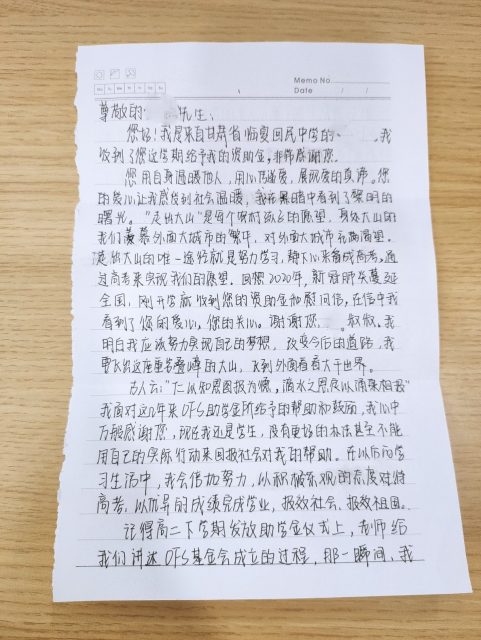 Memo No.
Date / /
尊敬的 先生:
您好!我是来自甘肃省临夏回民中学的 ,我
收到了您这学期给予我的资助金,非常感谢您。
您用自身温暖他人,用心传递爱,展现爱的真谛。您
的爱心让我感受到社会温暖,我在黑暗中看到了黎明的
曙光。“走出大山”是每个农村孩子的愿望,身处大山的
我们羡慕外面大城市的繁华,对外面大城市充满渴望。
走出大山的唯一途径就是努力学习,静下心来备战高考。通
过高考来实现我们的愿望。回想2020年,新冠肺炎蔓延
全国,刚开学就收到您的资助金和慰问信,在信中我
看到了您的爱心,您的关心。谢谢您, 叔叔。我
明白我应该努力实现自己的梦想,改变今后的道路,我
要飞出这座重峦叠嶂的大山,飞到外面看看大千世界。
古人云:“仁以知恩图报为德,滴水之恩定以涌泉相报”
我面对这几年来OFS助学金所给予的帮助和鼓励,我心中
万般感谢您,现在我还是学生,没有更好的办法甚至不能
用自己的实际行动来回报社会对我的帮助。在以后的学
习生活中,我会倍加努力,以积极乐观的态度对待
高考,以优异的成绩完成学业,报效社会、报效祖国。
记得高二下学期发放助学金仪式上,老师给
我们讲述OFS基金会成立的过程,那一瞬间,我